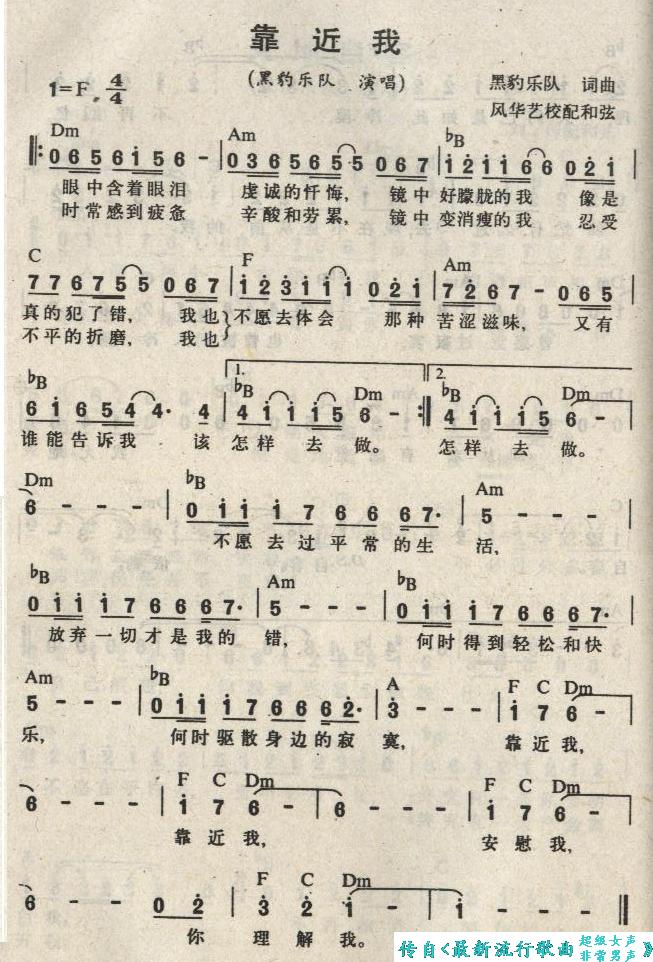 靠近我
(黑豹乐队 演唱)
黑豹乐队 词曲
1=F 4/4
风华艺校配和弦
Dm Am ♭B
0 6 5 6 1̇ 5 6 - | 0 3 6 5 6 5 5 0 6 7 | 1̇ 2̇ 1̇ 1̇ 6 6 0 2̇ 1̇ |
眼中含着眼泪 虔诚的忏悔, 镜中 好朦胧的我 像是
时常感到疲惫 辛酸和劳累, 镜中 变消瘦的我 忍受
C F Am
7 7 6 7 5 5 0 6 7 | 1̇ 2̇ 3̇ 1̇ 1̇ 1̇ 0 2̇ 1̇ | 7 2̇ 6 7 - 0 6 5 |
真的犯了错, 我也 不愿去体会 那种 苦涩滋味, 又有
不平的折磨, 我也
1. 2.
♭B ♭B Dm ♭B Dm
6 1̇ 6 5 4 4· 4 | 4 1̇ 1̇ 1̇ 5 6 - :| 4 1̇ 1̇ 1̇ 5 6 - |
谁能告诉我 该 怎样 去 做。 怎样 去 做。
Dm ♭B Am
6 - - - | 0 1̇ 1̇ 1̇ 7 6 6 6 7· | 5 - - - |
不愿去过平常的生 活,
♭B Am ♭B
0 1̇ 1̇ 1̇ 7 6 6 6 7· | 5 - - - | 0 1̇ 1̇ 1̇ 7 6 6 6 7· |
放弃一切才是我的 错, 何时得到轻松和快
Am ♭B A F C Dm
5 - - - | 0 1̇ 1̇ 1̇ 7 6 6 6 2̇· | 3̇ - - - | 1̇ 7 6 - |
乐, 何时驱散身边的寂 寞, 靠近我,
F C Dm F C Dm
6 - - - | 1̇ 7 6 - | 6 - - - | 1̇ 7 6 - |
靠近我, 安慰我,
F C Dm
6 - - 0 2̇ | 3̇ 2̇ 1̇ - | 1̇ - - - ‖
你 理解我。
传自《最新流行歌曲 超级女声 非常男声》